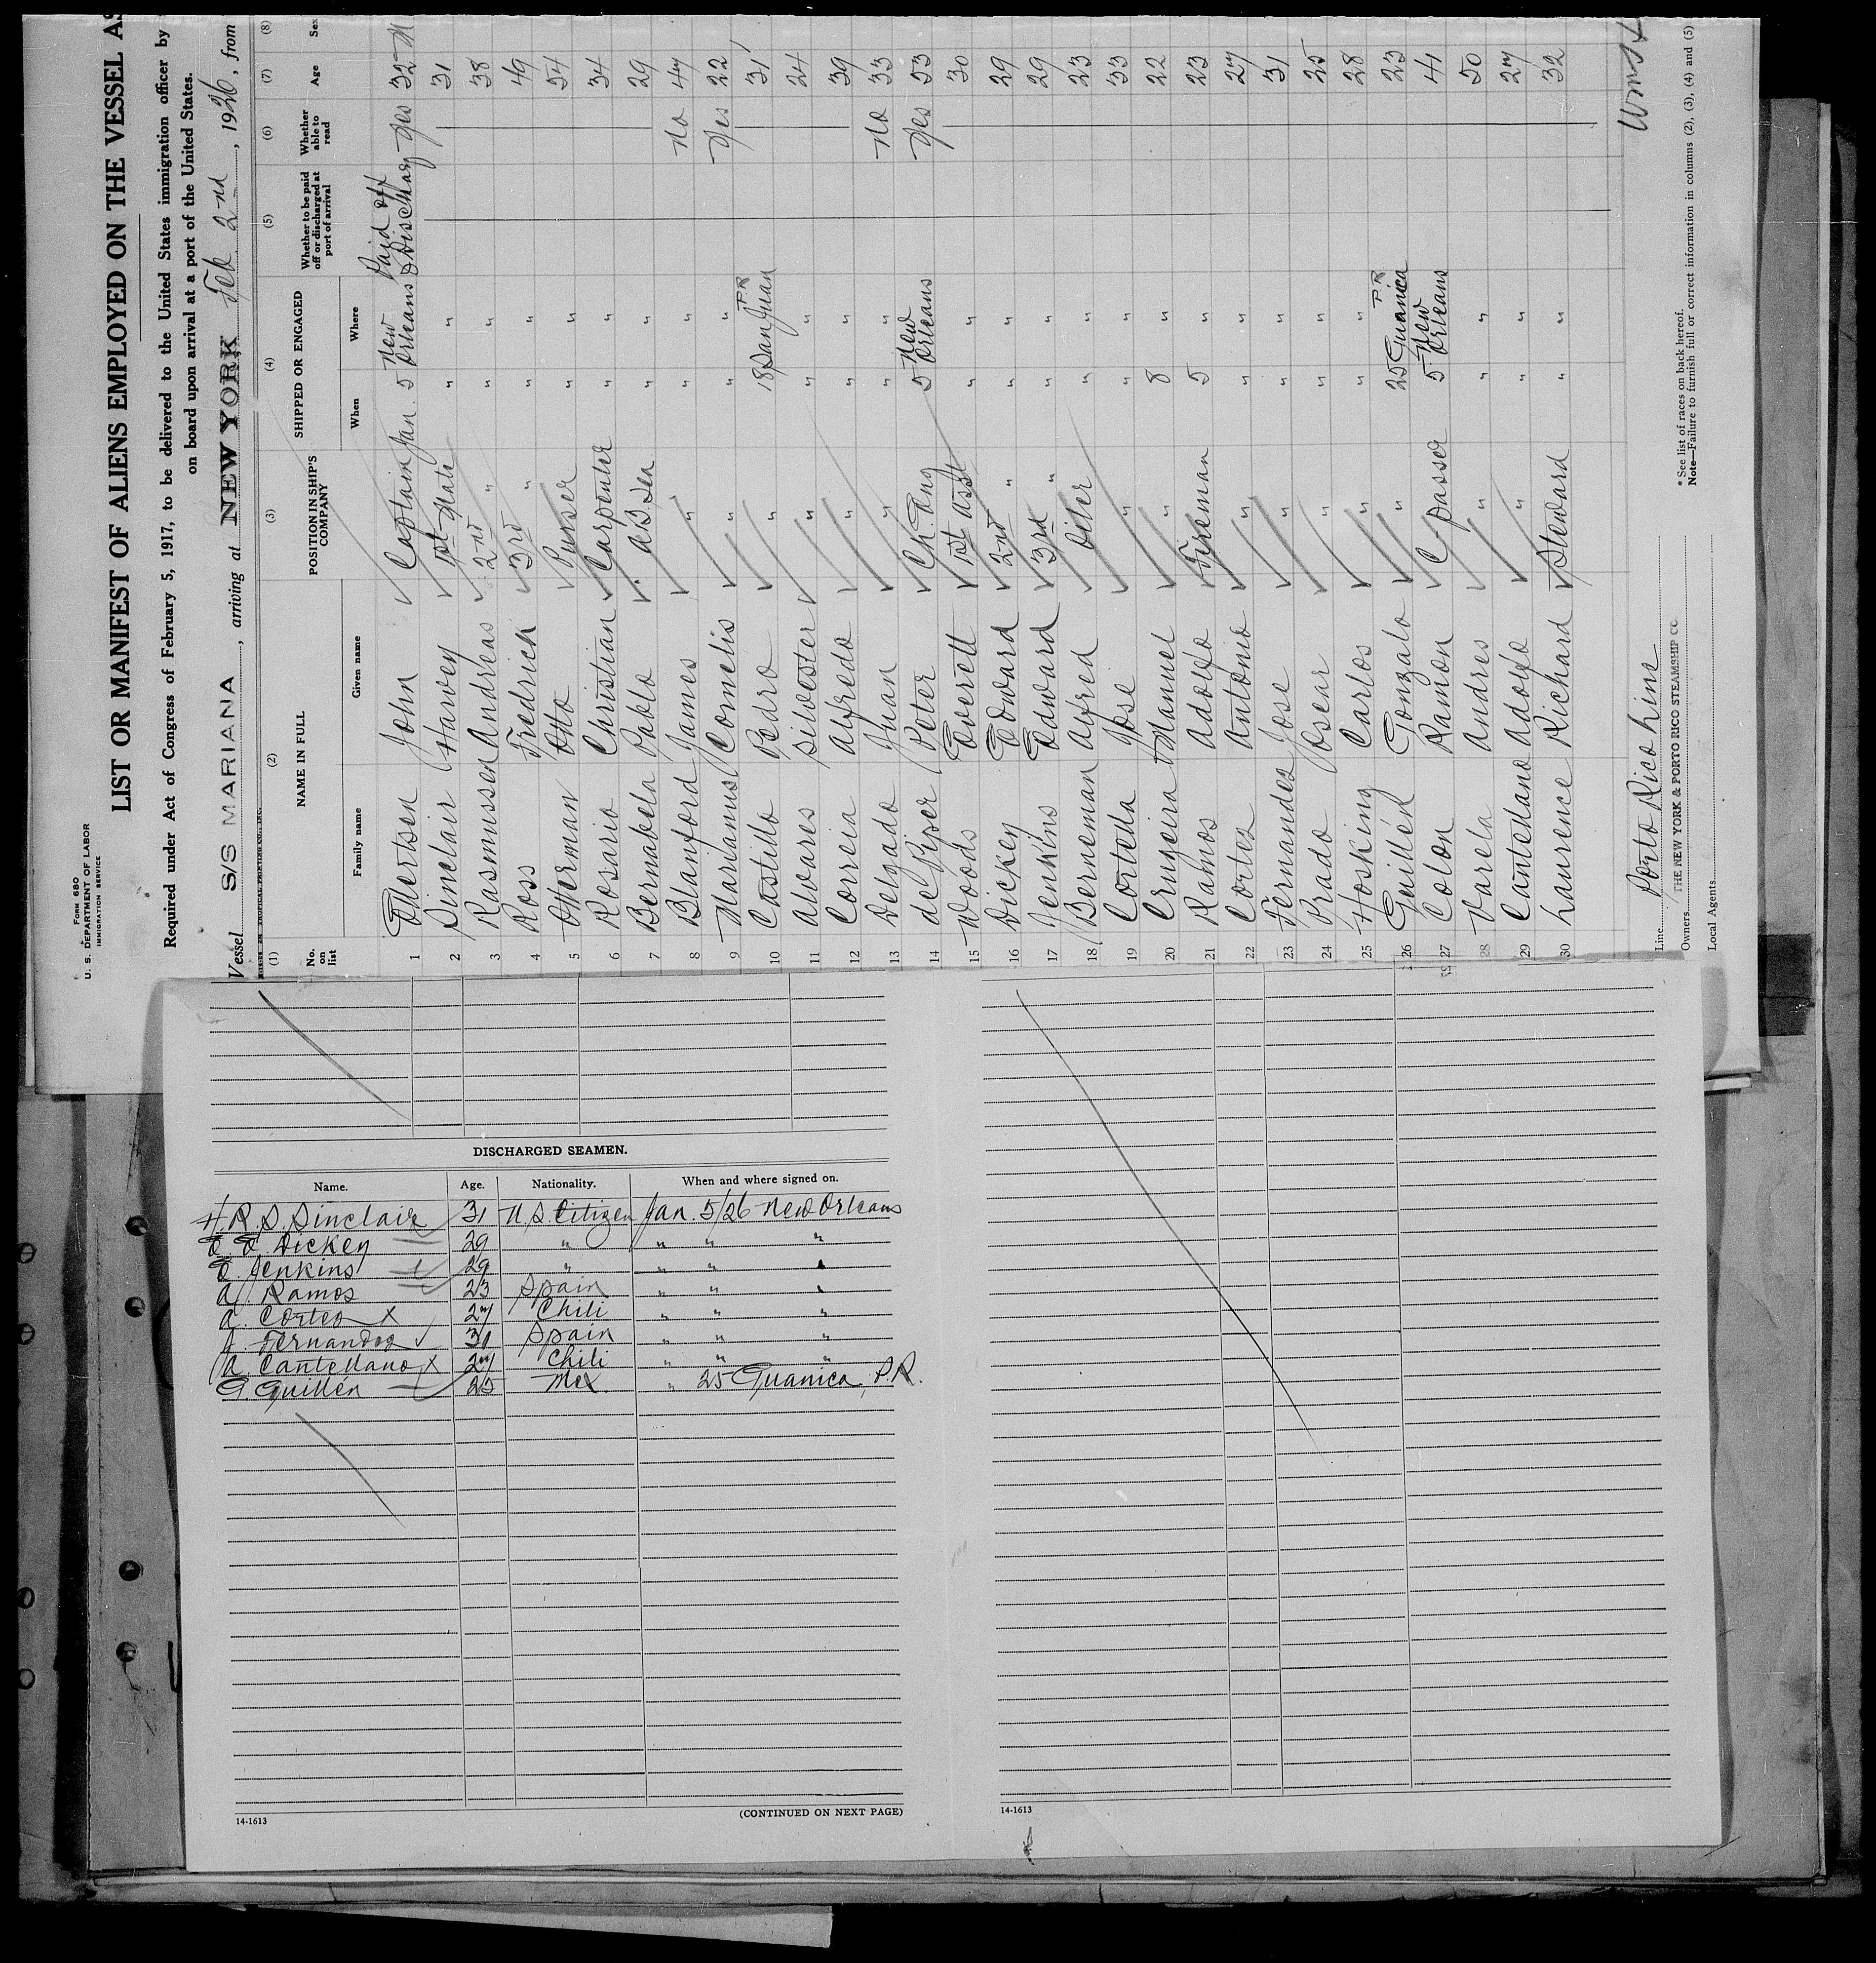 FORM 680
U. S. DEPARTMENT OF LABOR
IMMIGRATION SERVICE
LIST OR MANIFEST OF ALIENS EMPLOYED ON THE VESSEL AS
Required under Act of Congress of February 5, 1917, to be delivered to the United States immigration officer by
on board upon arrival at a port of the United States.
Vessel S/S MARIANA, arriving at NEW YORK Feb. 2nd, 1926, from
(1) (2) (3) (4) (5) (6) (7) (8)
No. on list NAME IN FULL POSITION IN SHIP'S COMPANY SHIPPED OR ENGAGED Whether to be paid off or discharged at port of arrival Whether able to read Age Sex
Family name Given name When Where
1 Ellertsen John Captain Jan. 5 New Orleans Paid off & Discharg Yes 32 M
2 Sinclair Harvey 1st Mate " " 31
3 Rasmussen Andreas 2nd " " " 38
4 Ross Fredrich 3rd " " " 49
5 Otterman Otto Purser " " 54
6 Rosario Christian Carpenter " " 34
7 Bernabela Pablo AB Sea " " 29
8 Blanford James " " " No 47
9 Marianus Cornelis " " " Yes 22
10 Castillo Pedro " 18 San Juan P.R 31
11 Alvares Silvester " " " 24
12 Correia Alfredo " " " 39
13 Delgado Juan " " " No 33
14 de Pijper Peter Ch. Eng 5 New Orleans Yes 53
15 Woods Everett 1st Asst " " 30
16 Dickey Edward 2nd " " " 29
17 Jenkins Edward 3rd " " " 29
18 Berneman Alfred Oiler " " 23
19 Corteda Jose " " " 33
20 Cruzeira Manuel " 8 " 22
21 Ramos Adolfo Fireman 5 " 23
22 Cortez Antonio " " " 27
23 Fernandez Jose " " " 31
24 Prado Oscar " " " 25
25 Hosking Carlos " " " 28
26 Guillén Gonzalo " 25 Guanica P R 23
27 Colon Ramon C passer 5 New Orleans 41
28 Varela Andres " " " 50
29 Cantellano Adolfo " " " 27
30 Laurence Richard Steward " " 32
Line Porto Rico Line
Owners THE NEW YORK & PORTO RICO STEAMSHIP CO.
Local Agents
* See list of races on back hereof.
Note—Failure to furnish full or correct information in columns (2), (3), (4) and (5)
DISCHARGED SEAMEN.
Name. Age. Nationality. When and where signed on.
H. R. S. Sinclair 31 U.S. Citizen Jan. 5/26 New Orleans
E. E. Dickey 29 " " " "
E. Jenkins 29 " " " "
A. Ramos 23 Spain " " "
A. Cortez X 27 Chili " " "
J. Fernandez 31 Spain " " "
A. Cantellano X 27 Chili " " "
G. Guillén 25 Mex. " 25 Guanica, P.R.
14-1613
(CONTINUED ON NEXT PAGE)
14-1613